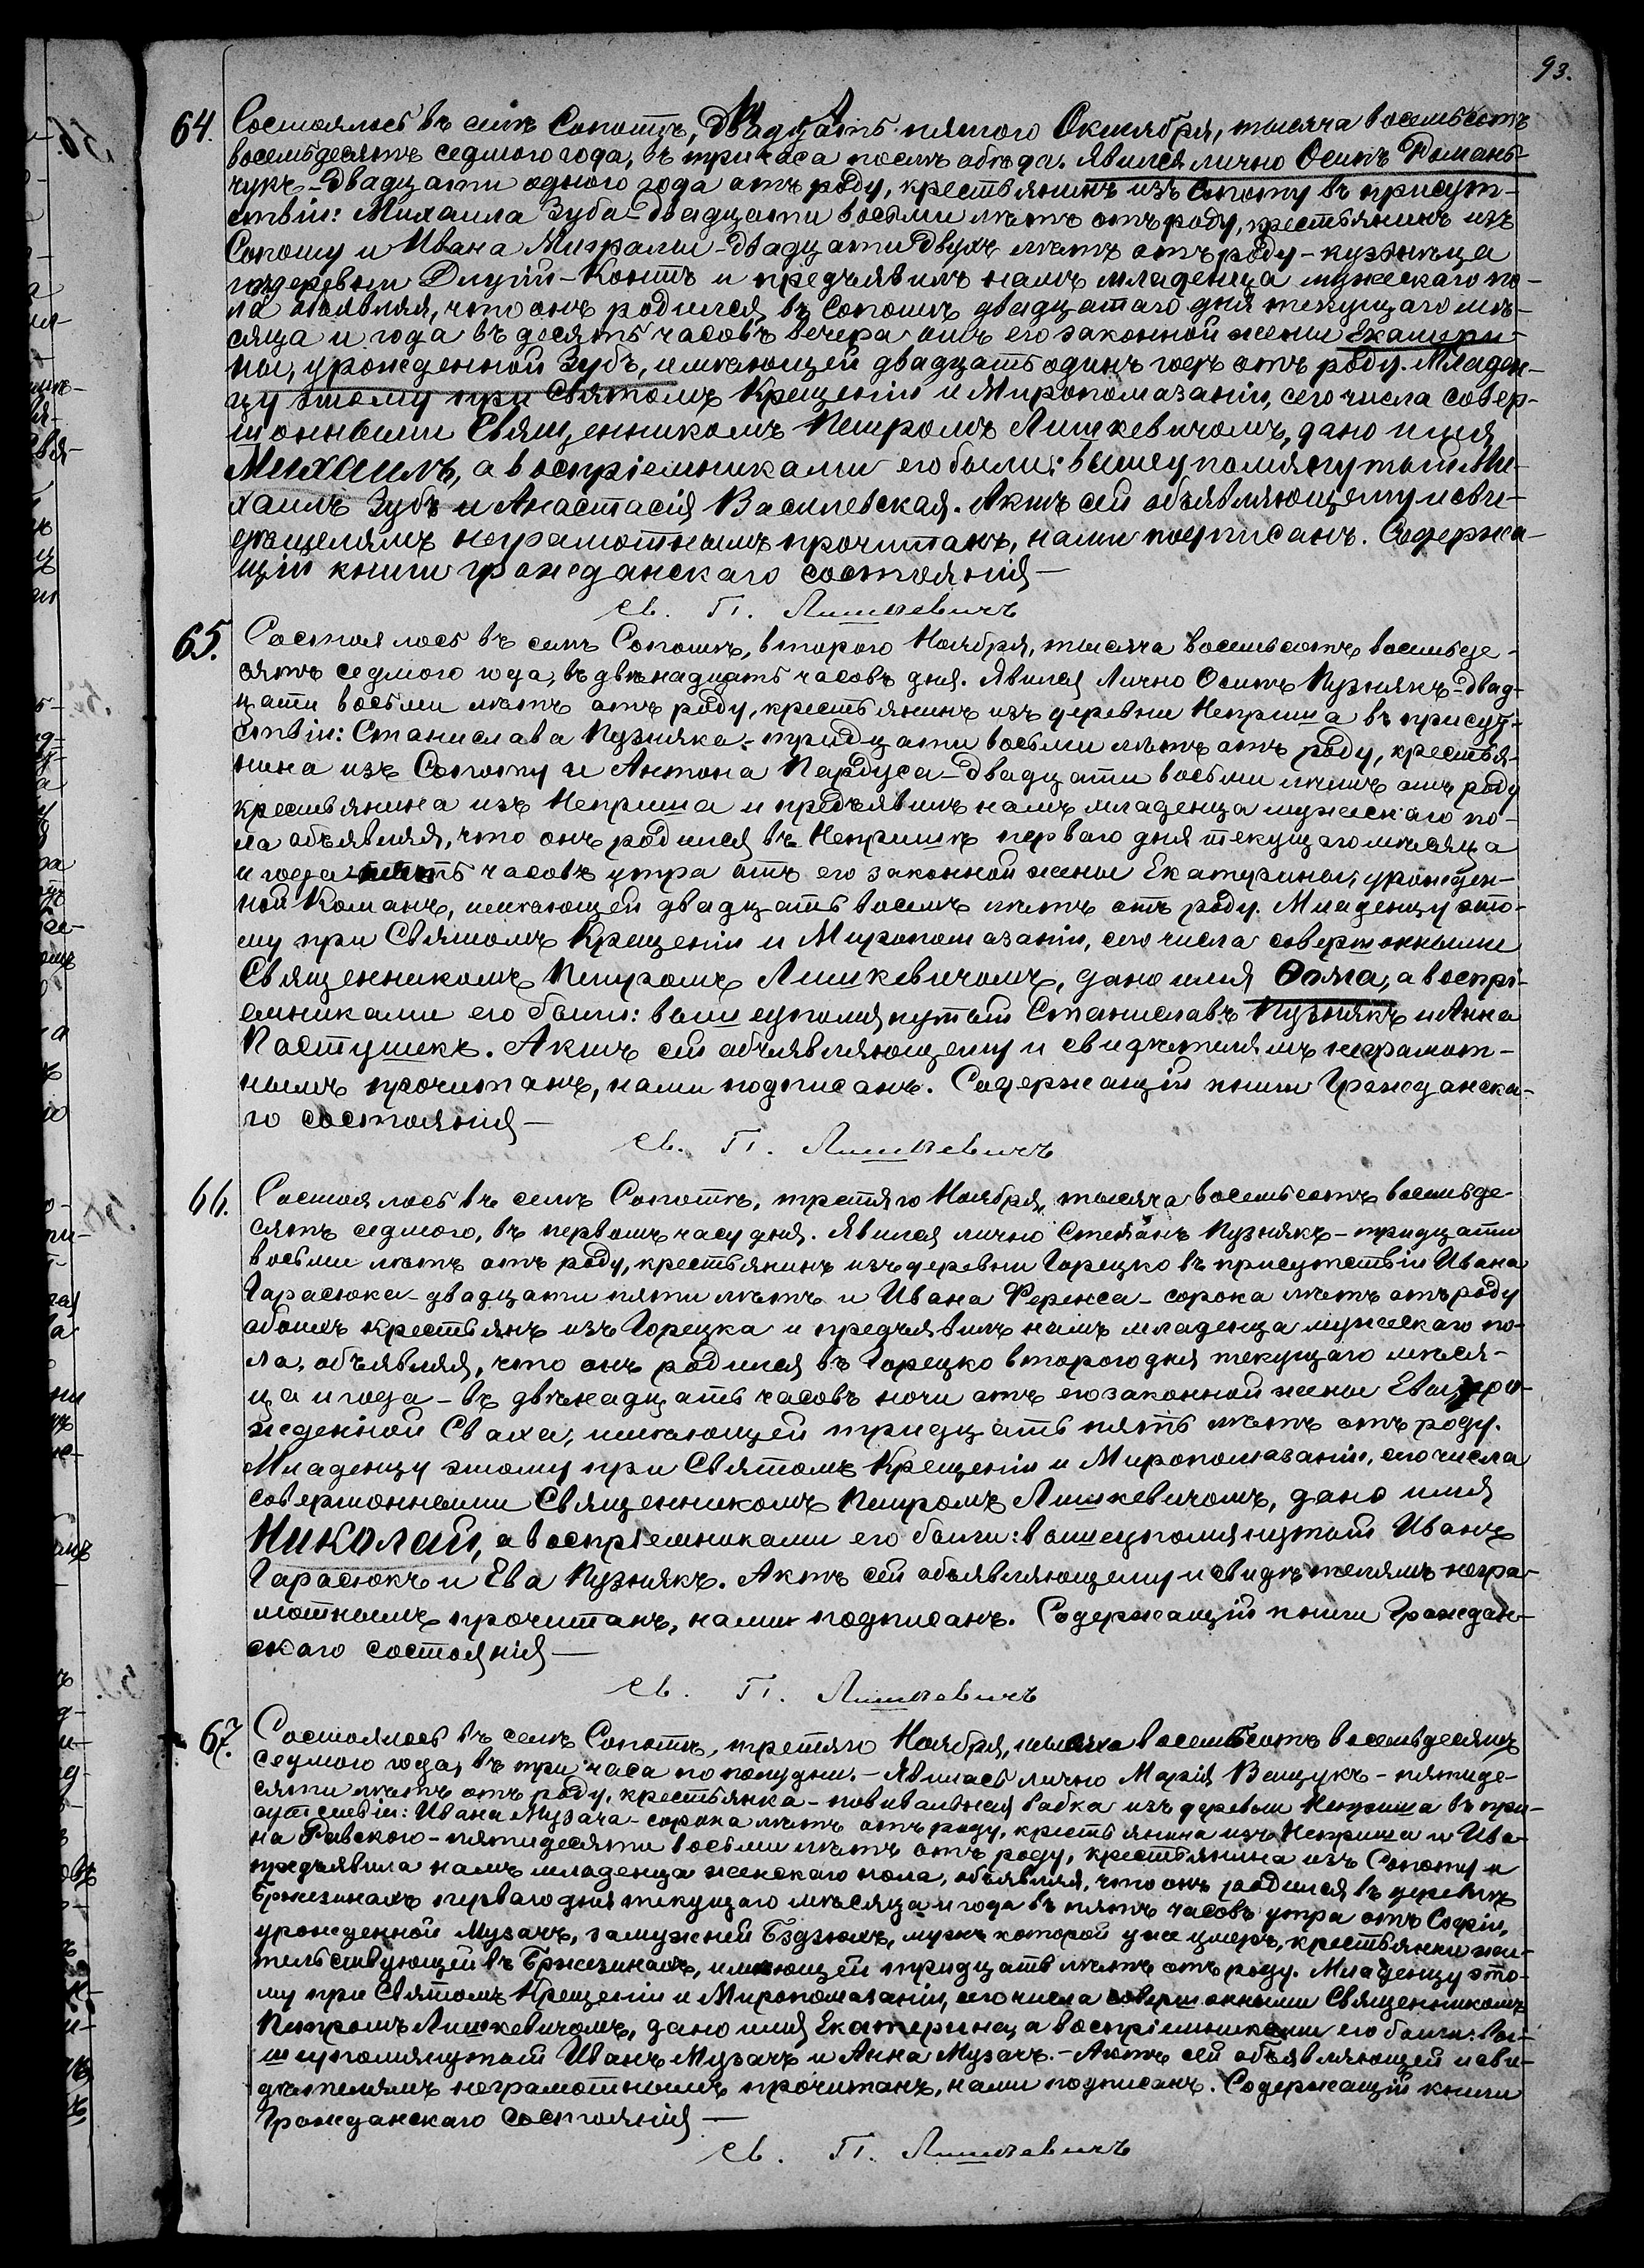 93.
64. Состоялось въ селѣ Сопотѣ, двадцать пятого Октября, тысяча восемьсотъ
восемьдесятъ седмого года, въ три часа послѣ обѣда. Явился лично Осипъ Романь-
чукъ - двадцати одного года отъ роду, крестьянинъ изъ Сопоту въ присут-
ствіи: Михаила Зуба - двадцати восьми лѣтъ отъ роду, крестьянинъ изъ
Сопоту и Ивана - двадцати двухъ лѣтъ отъ роду - кузнеца
изъ деревни Длугій-Контъ и предъявилъ намъ младенца мужескаго по-
ла объявляя, что онъ родился въ Сопотѣ двадцатаго дня текущаго мѣ-
сяца и года въ десять часовъ вечера отъ его законной жены Екатери-
ны, урожденной Зубъ, имѣющей двадцать одинъ годъ отъ роду. Младен-
цу этому при Святомъ Крещеніи и Миропомазаніи, сего числа совер-
шонными Священникомъ Петромъ Лишкевичомъ, дано имя
Михаилъ, а воспріемниками его были: вышеупомянутый Ми-
хаилъ Зубъ и Анастасія Василевская. Актъ сей объявляющему и сви-
дѣтелямъ неграмотнымъ прочитанъ, нами подписанъ. Содержа-
щій книги гражданскаго состоянія —
Св. П. Лишкевичъ
65. Состоялось въ селѣ Сопотѣ, второго Ноября, тысяча восемьсотъ восемьде-
сятъ седмого года, въ двѣнадцать часовъ дня. Явился Лично Осипъ Пузнякъ - двад-
цати восьми лѣтъ отъ роду, крестьянинъ изъ деревни Неприша въ присут-
ствіи: Станислава Пузняка - тридцати восьми лѣтъ отъ роду, крестья-
нина изъ Сопоту и Антона Пардуса - двадцати восьми лѣтъ отъ роду
крестьянина изъ Неприша и предъявилъ намъ младенца мужескаго по-
ла объявляя, что онъ родился въ Непришѣ перваго дня текущаго мѣсяца
и года часовъ утра отъ его законной жены Екатерины, урожден-
ной Команъ, имѣющей двадцать восемь лѣтъ отъ роду. Младенцу это-
му при Святомъ Крещеніи и Миропомазаніи, сего числа совершонными
Священникомъ Петромъ Лишкевичомъ, дано имя Ѳома, а воспрі-
емниками его были: вышеупомянутый Станиславъ Пузнякъ и Анна
Пастушекъ. Актъ сей объявляющему и свидѣтелямъ неграмот-
нымъ прочитанъ, нами подписанъ. Содержащій книги Гражданска-
го состоянія —
Св. П. Лишкевичъ
66. Состоялось въ селѣ Сопотѣ, третяго Ноября, тысяча восемьсотъ восемьде-
сятъ седмого, въ первомъ часу дня. Явился лично Стефанъ Пузнякъ - тридцати
восьми лѣтъ отъ роду, крестьянинъ изъ деревни Горецко въ присутствіи Ивана
Гарасюка - двадцати пяти лѣтъ и Ивана Ференса - сорока лѣтъ отъ роду
обоихъ крестьянъ изъ Горецка и предъявилъ намъ младенца мужескаго по-
ла, объявляя, что онъ родился въ Горецко второго дня текущаго мѣся-
ца и года - въ двѣнадцать часовъ ночи отъ его законной жены Евы, уро-
жденной Сваха, имѣющей тридцать пять лѣтъ отъ роду.
Младенцу этому при Святомъ Крещеніи и Миропомазаніи, сего числа
совершонными Священникомъ Петромъ Лишкевичомъ, дано имя
Николай, а воспріемниками его были: вышеупомянутый Иванъ
Гарасюкъ и Ева Пузнякъ. Актъ сей объявляющему и свидѣтелямъ негра-
мотнымъ прочитанъ, нами подписанъ. Содержащій книги Граждан-
скаго состоянія —
Св. П. Лишкевичъ
67. Состоялось въ селѣ Сопотѣ, третяго Ноября, тысяча восемьсотъ восемьдесятъ
седмого года, въ три часа по полудни. - Явилась лично Марія Ващукъ - пятиде-
сяти лѣтъ отъ роду, крестьянка - повивальная бабка изъ деревни Неприша въ при-
сутствіи: Ивана Музача - сорока лѣтъ отъ роду, крестьянина изъ Неприша и Ива-
на Равского - пятидесяти восьми лѣтъ отъ роду, крестьянина изъ Сопоту и
предъявила намъ младенца женскаго пола, объявляя, что онъ родился въ деревнѣ
Бржезинахъ перваго дня текущаго мѣсяца и года въ пять часовъ утра отъ Софіи,
урожденной Музачъ, замужней Бздзюхъ, мужъ которой уже умеръ, крестьянки жи-
тельствующей въ Бржезинахъ, имѣющей тридцать лѣтъ отъ роду. Младенцу это-
му при Святомъ Крещеніи и Миропомазаніи, сего числа совершонными Священникомъ
Петромъ Лишкевичомъ, дано имя Екатерина, а воспріемниками его были: вы-
шеупомянутый Иванъ Музачъ и Анна Музачъ. - Актъ сей объявляющей и сви-
дѣтелямъ неграмотнымъ прочитанъ, нами подписанъ. Содержащій книги
Гражданскаго состоянія —
Св. П. Лишкевичъ